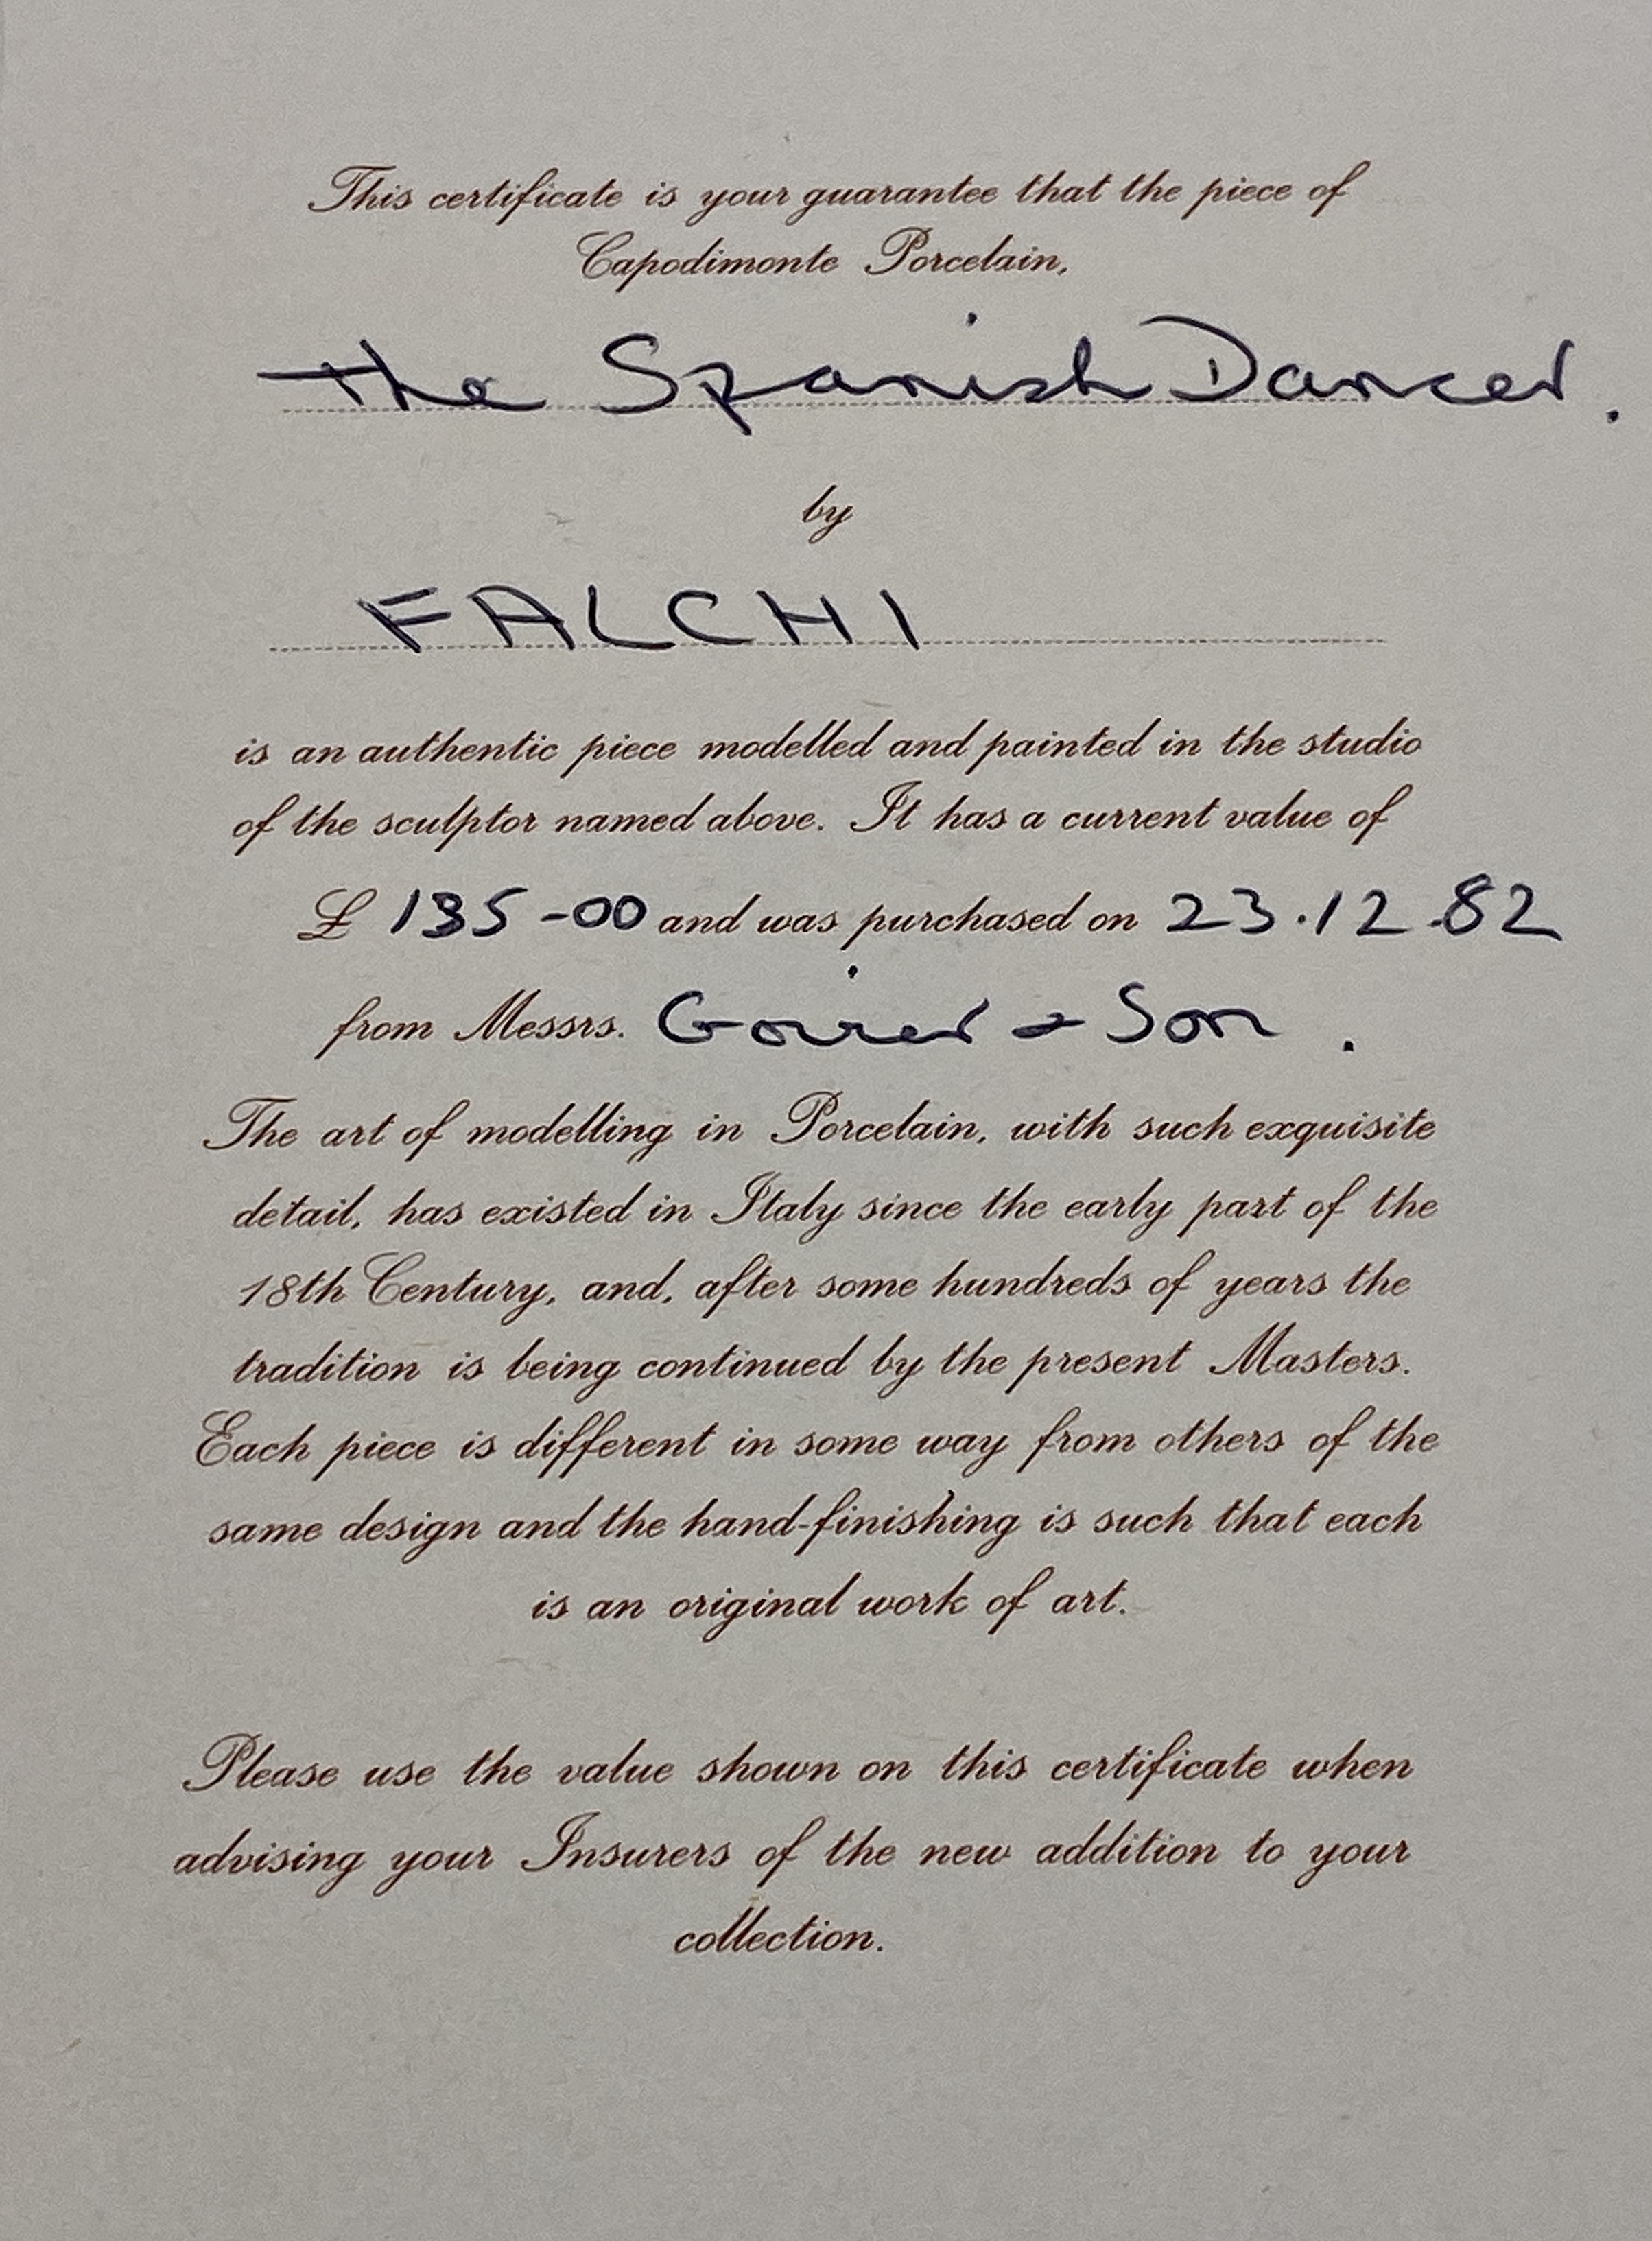 This certificate is your guarantee that the piece of
Capodimonte Porcelain,
the Spanish Dancer.
by
FALCHI
is an authentic piece modelled and painted in the studio
of the sculptor named above. It has a current value of
£ 135-00 and was purchased on 23.12.82
from Messrs. & Son.
The art of modelling in Porcelain, with such exquisite
detail, has existed in Italy since the early part of the
18th Century, and, after some hundreds of years the
tradition is being continued by the present Masters.
Each piece is different in some way from others of the
same design and the hand-finishing is such that each
is an original work of art.
Please use the value shown on this certificate when
advising your Insurers of the new addition to your
collection.